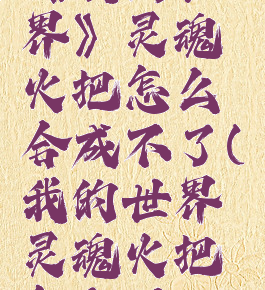 界》灵魂
火把怎么
合成不了(
我的世界
灵魂火把